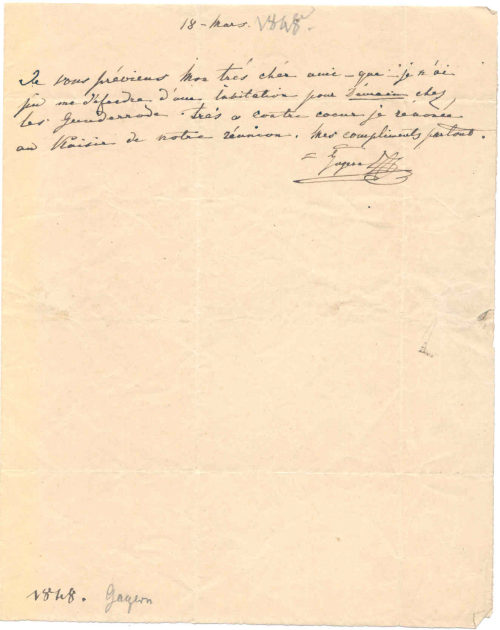 18 - Mars. 1848.
Je vous préviens Mon très chér ami - que je n'ai
pu me défendre d'une invitation pour demain chez
les Gunderrode. Très a contre coeur je renonce
au Plaisir de notre réunion. Mes compliments partout.
= Gagern
1848. Gagern